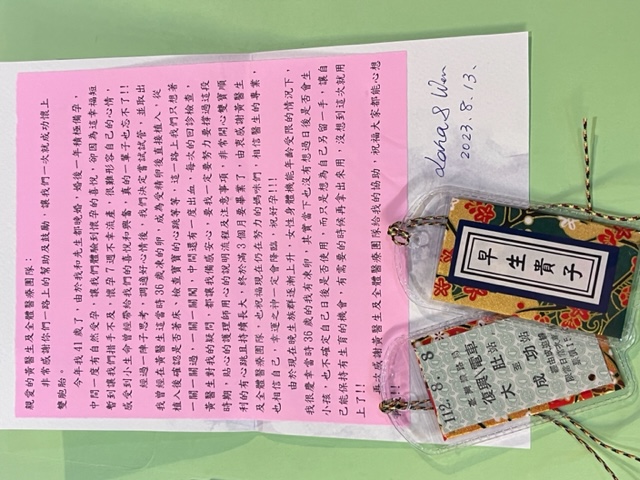 親愛的黃醫生及全體醫療團隊：
非常感謝你們一路上的幫助及鼓勵，讓我們一次就成功懷上
雙胞胎。
今年我41歲了，由於我和先生都晚婚，婚後一年積極備孕，
中間一度有自然受孕，讓我們體驗到懷孕的喜悅，卻因為這幸福短
暫到讓我們措手不及，懷孕7週不幸流產，很難形容自己的心情，
感受到小生命曾經帶給我們的喜悅和興奮，真的一輩子也忘不了!!
經過一陣子思考，調適好心情後，我們決定嘗試試管，並取出
我曾經在黃醫生這當時36歲凍的卵，成為受精卵後直接植入，從
植入後確認是否著床、檢查寶寶的心跳等等，這一路上我們只想著
一關一關過，一關一關闖，中間還有一度出血，每次的回診檢查，
黃醫生對我的疑問，都讓我備感安心，要我一定要努力要撐過這段
時期，貼心的護理師用心的說明流程及注意事項，非常開心雙寶順
利的有心跳且持續長大，終於滿3個月要畢業了，由衷感謝黃醫生
及全體醫療團隊，也祝福現在仍在努力的媽咪們，相信醫生的專業，
也相信自己，幸運之神一定會降臨，祝好孕!!!
由於現在晚生族群逐漸上升，女性身體機能年齡受限的情況下，
我很慶幸當時36歲的我有凍卵，其實當下也沒有想過日後是否會生
小孩，也不確定自己日後是否使用，而只是想為自己另留一手，讓自
己能保持有生育的機會，有需要的時候再拿出來用，沒想到這次就用
上了!!
再次感謝黃醫生及全體醫療團隊給我的協助，祝福大家都能心想
2023.8.13.
早生貴子
112.8.8
復興/電車
肚 功
大 至 成